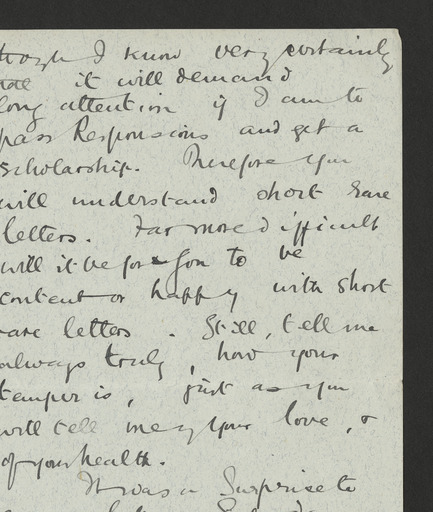 though I know very certainly
that it will demand
long attention if I am to
pass Responsions and get a
scholarship. Therefore you
will understand short rare
letters. Far more difficult
will it be for you to be
content or happy with short
rare letters. Still, tell me
always truly, how your
temper is, just as you
will tell me of your love, &
of your health.
It was a Surprise to